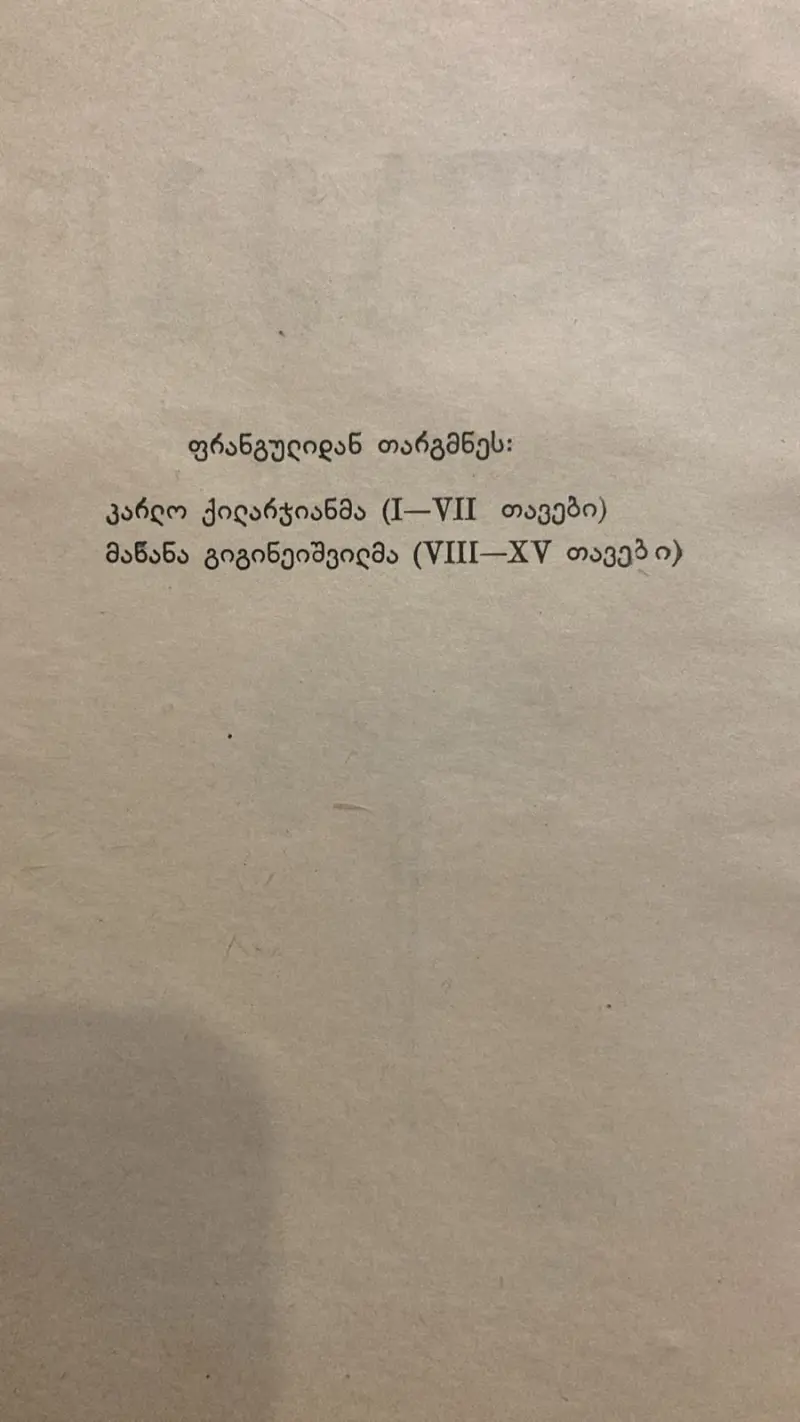 ფრანგულიდან თარგმნეს:
კარლო ქილარჯიანმა (I—VII თავები)
მანანა გიგინეიშვილმა (VIII—XV თავები)